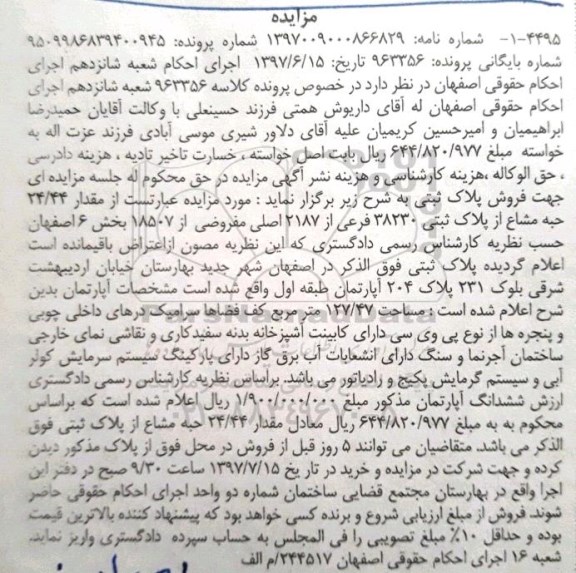 مزایده
۱-۴۴۹۵- شماره نامه: ۱۳۹۷۰۰۹۰۰۰۸۶۶۸۲۹ شماره پرونده: ۹۵۰۹۹۸۶۸۳۹۴۰۰۹۴۵
شماره بایگانی پرونده: ۹۶۳۳۵۶ تاریخ: ۱۳۹۷/۶/۱۵ اجرای احکام شعبه شانزدهم اجرای
احکام حقوقی اصفهان در نظر دارد در خصوص پرونده کلاسه ۹۶۳۳۵۶ شعبه شانزدهم اجرای
احکام حقوقی اصفهان له آقای داریوش همتی فرزند حسینعلی با وکالت آقایان حمیدرضا
ابراهیمیان و امیرحسین کریمیان علیه آقای دلاور شیری موسی آبادی فرزند عزت اله به
خواسته مبلغ ۶۴۴/۸۲۰/۹۷۷ ریال بابت اصل خواسته ، خسارت تاخیر تادیه ، هزینه دادرسی
، حق الوکاله ،هزینه کارشناسی و هزینه نشر آگهی مزایده در حق محکوم له جلسه مزایده ای
جهت فروش پلاک ثبتی به شرح زیر برگزار نماید : مورد مزایده عبارتست از مقدار ۲۴/۴۴
حبه مشاع از پلاک ثبتی ۳۸۲۳۰ فرعی از ۲۱۸۷ اصلی مفروضی از ۱۸۵۰۷ بخش ۶ اصفهان
حسب نظریه کارشناس رسمی دادگستری که این نظریه مصون ازاعتراض باقیمانده است
اعلام گردیده پلاک ثبتی فوق الذکر در اصفهان شهر جدید بهارستان خیابان اردیبهشت
شرقی بلوک ۲۳۱ پلاک ۲۰۴ آپارتمان طبقه اول واقع شده است مشخصات آپارتمان بدین
شرح اعلام شده است : مساحت ۲۷/۴۷ متر مربع کف فضاها سرامیک درهای داخلی چوبی
و پنجره ها از نوع پی وی سی دارای کابینت آشپزخانه بدنه سفیدکاری و نقاشی نمای خارجی
ساختمان آجرنما و سنگ دارای انشعابات آب برق گاز دارای پارکینگ سیستم سرمایش کولر
آبی و سیستم گرمایش پکیج و رادیاتور می باشد. براساس نظریه کارشناس رسمی دادگستری
ارزش ششدانگ آپارتمان مذکور مبلغ ۱/۹۰۰/۰۰۰/۰۰۰ ریال اعلام شده است که براساس
محکوم به به مبلغ ۶۴۴/۸۲۰/۹۷۷ ریال معادل مقدار ۲۴/۴۴ حبه مشاع از پلاک ثبتی فوق
الذکر می باشد. متقاضیان می توانند ۵ روز قبل از فروش در محل فوق از پلاک مذکور دیدن
کرده و جهت شرکت در مزایده و خرید در تاریخ ۱۳۹۷/۷/۱۵ ساعت ۹/۳۰ صبح در دفتر این
اجرا واقع در بهارستان مجتمع قضایی ساختمان شماره دو واحد اجرای احکام حقوقی حاضر
شوند. فروش از مبلغ ارزیابی شروع و برنده کسی خواهد بود که پیشنهاد کننده بالاترین قیمت
بوده و حداقل ۱۰٪ مبلغ تصویبی را فی المجلس به حساب سپرده دادگستری واریز نماید.
شعبه ۱۶ اجرای احکام حقوقی اصفهان ۲۴۴۵۱۷/م الف